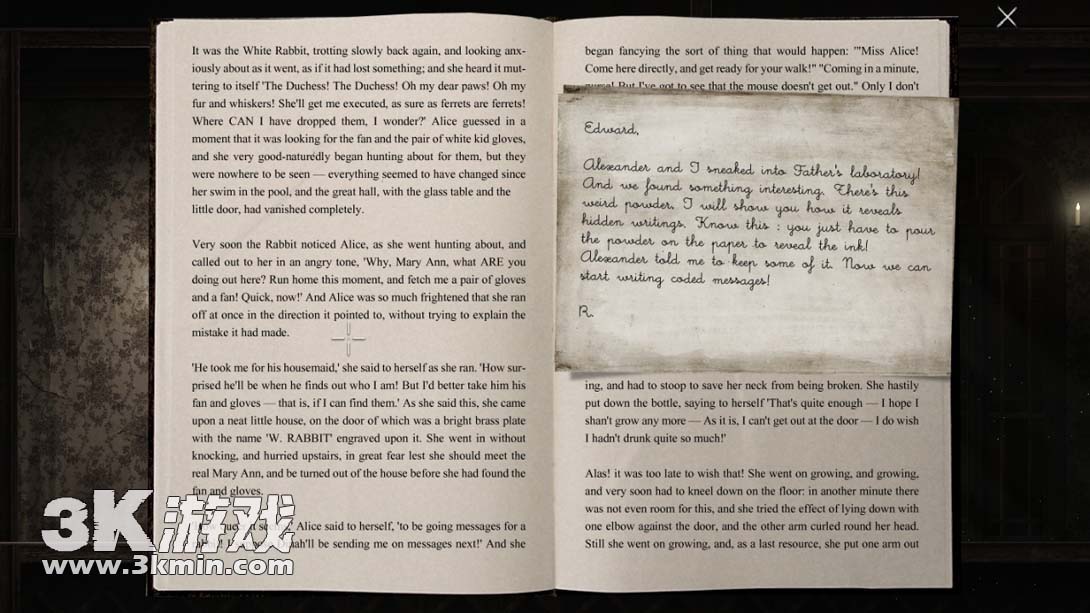 It was the White Rabbit, trotting slowly back again, and looking anx-
iously about as it went, as if it had lost something; and she heard it mut-
tering to itself 'The Duchess! The Duchess! Oh my dear paws! Oh my
fur and whiskers! She'll get me executed, as sure as ferrets are ferrets!
Where CAN I have dropped them, I wonder?' Alice guessed in a
moment that it was looking for the fan and the pair of white kid gloves,
and she very good-naturedly began hunting about for them, but they
were nowhere to be seen — everything seemed to have changed since
her swim in the pool, and the great hall, with the glass table and the
little door, had vanished completely.
Very soon the Rabbit noticed Alice, as she went hunting about, and
called out to her in an angry tone, 'Why, Mary Ann, what ARE you
doing out here? Run home this moment, and fetch me a pair of gloves
and a fan! Quick, now!' And Alice was so much frightened that she ran
off at once in the direction it pointed to, without trying to explain the
mistake it had made.
'He took me for his housemaid,' she said to herself as she ran. 'How sur-
prised he'll be when he finds out who I am! But I'd better take him his
fan and gloves — that is, if I can find them.' As she said this, she came
upon a neat little house, on the door of which was a bright brass plate
with the name 'W. RABBIT' engraved upon it. She went in without
knocking, and hurried upstairs, in great fear lest she should meet the
real Mary Ann, and be turned out of the house before she had found the
fan and gloves.
Alice said to herself, 'to be going messages for a
sending me on messages next!' And she
began fancying the sort of thing that would happen: '"Miss Alice!
Come here directly, and get ready for your walk!" "Coming in a minute,
nurse! But I've got to see that the mouse doesn't get out." Only I don't
Edward,
Alexander and I sneaked into Father's laboratory!
And we found something interesting. There's this
weird powder. I will show you how it reveals
hidden writings. Know this : you just have to pour
the powder on the paper to reveal the ink!
Alexander told me to keep some of it. Now we can
start writing coded messages!
R.
ing, and had to stoop to save her neck from being broken. She hastily
put down the bottle, saying to herself 'That's quite enough — I hope I
shan't grow any more — As it is, I can't get out at the door — I do wish
I hadn't drunk quite so much!'
Alas! it was too late to wish that! She went on growing, and growing,
and very soon had to kneel down on the floor: in another minute there
was not even room for this, and she tried the effect of lying down with
one elbow against the door, and the other arm curled round her head.
Still she went on growing, and, as a last resource, she put one arm out
3K游戏
www.3kmin.com